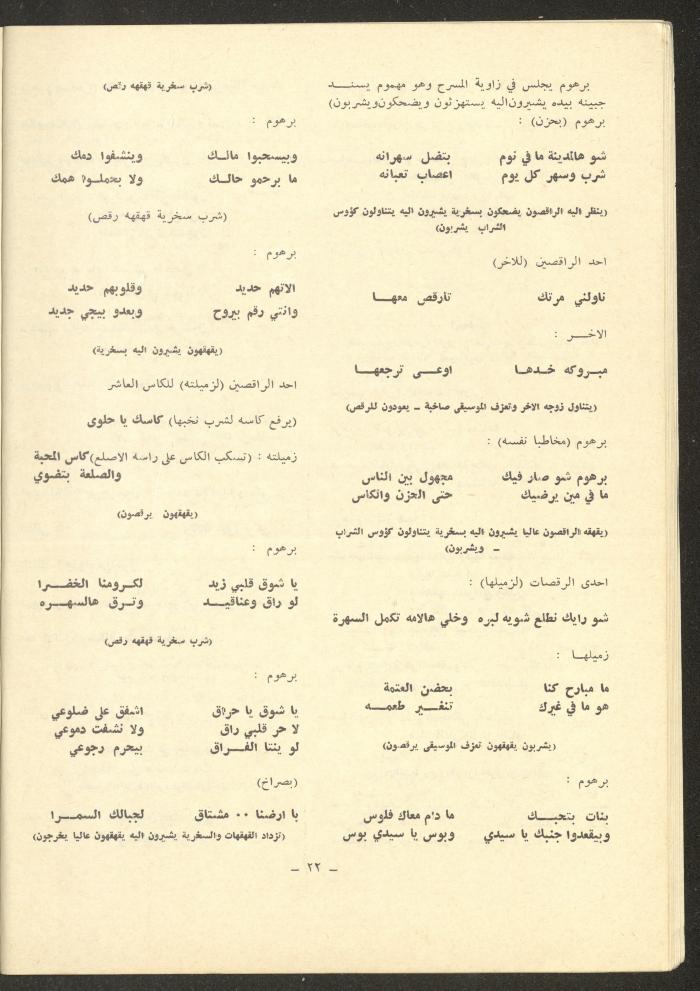 برهوم يجلس في زاوية المسرح وهو مهموم يسنـــد
جبينه بيده يشيرون اليه يستهزئون ويضحكون ويشربون)
برهوم (بحزن) :
شو هالمدينة ما في نوم بتضل سهرانه
شرب وسهر كل يوم اعصاب تعبانه
(ينظر اليه الراقصون يضحكون بسخرية يشيرون اليه يتناولون كؤوس
الشراب يشربون)
احد الراقصين (للاخر)
ناولني مرتك تارقص معهـــا
الاخـــر :
مبـروكه خـدهـا اوعـــى ترجعهــا
(يتناول زوجه الاخر وتعزف الموسيقى صاخبة ــ يعودون للرقص)
برهوم (مخاطبا نفسه) :
برهوم شو صار فيك مجهول بين الناس
ما في مين يرضيك حتى الحزن والكاس
(يقهقه الراقصون عاليا يشيرون اليه بسخرية يتناولون كؤوس الشراب
ــ ويشربون)
احدى الرقصات (لزميلها) :
شو رايك نطلع شويه لبره وخلي هالامه تكمل السهرة
زميلهــا :
ما مبارح كنا بحضن العتمة
هو ما في غيرك تنغــير طعمــه
(يشربون يقهقهون تعزف الموسيقى يرقصون)
برهوم :
بنات بتحبــك ما دام معاك فلوس
وبيقعدوا جنبك يا سيدي وبوس يا سيدي بوس
(شرب سخرية قهقهه رقص)
برهوم :
وبيسحبوا مالــك وينشفوا دمك
ما برحمو حالــك ولا بحملـوا همك
(شرب سخرية قهقهه رقص)
برهوم :
الاتهم حديد وقلوبهم حديد
وانتي رقم بيروح وبعدو بيجي جديد
(يقهقهون يشيرون اليه بسخرية)
احد الراقصين (لزميلته) للكاس العاشر
(يرفع كاسه لشرب نخبها) كاسك يا حلوى
زميلته : (تسكب الكاس على راسه الاصلع) كاس المحبة
والصلعة بتضوي
(يقهقهون يرقصون)
برهوم :
يا شوق قلبي زيد لكـرومنا الخضــرا
لو راق وعناقيــد وتـرق هالسهــره
(شرب سخرية قهقهه رقص)
برهوم :
يا شوق يا حراق اشفق على ضلوعي
لا حر قلبي راق ولا نشفت دموعي
لو ينتا الفــراق بيحرم رجوعي
(بصراخ)
يا ارضنا ٠٠ مشتاق لجبالك السمــرا
(تزداد القهقهات والسخرية يشيرون اليه يقهقهون عاليا يخرجون)
ــ ٢٢ ــ